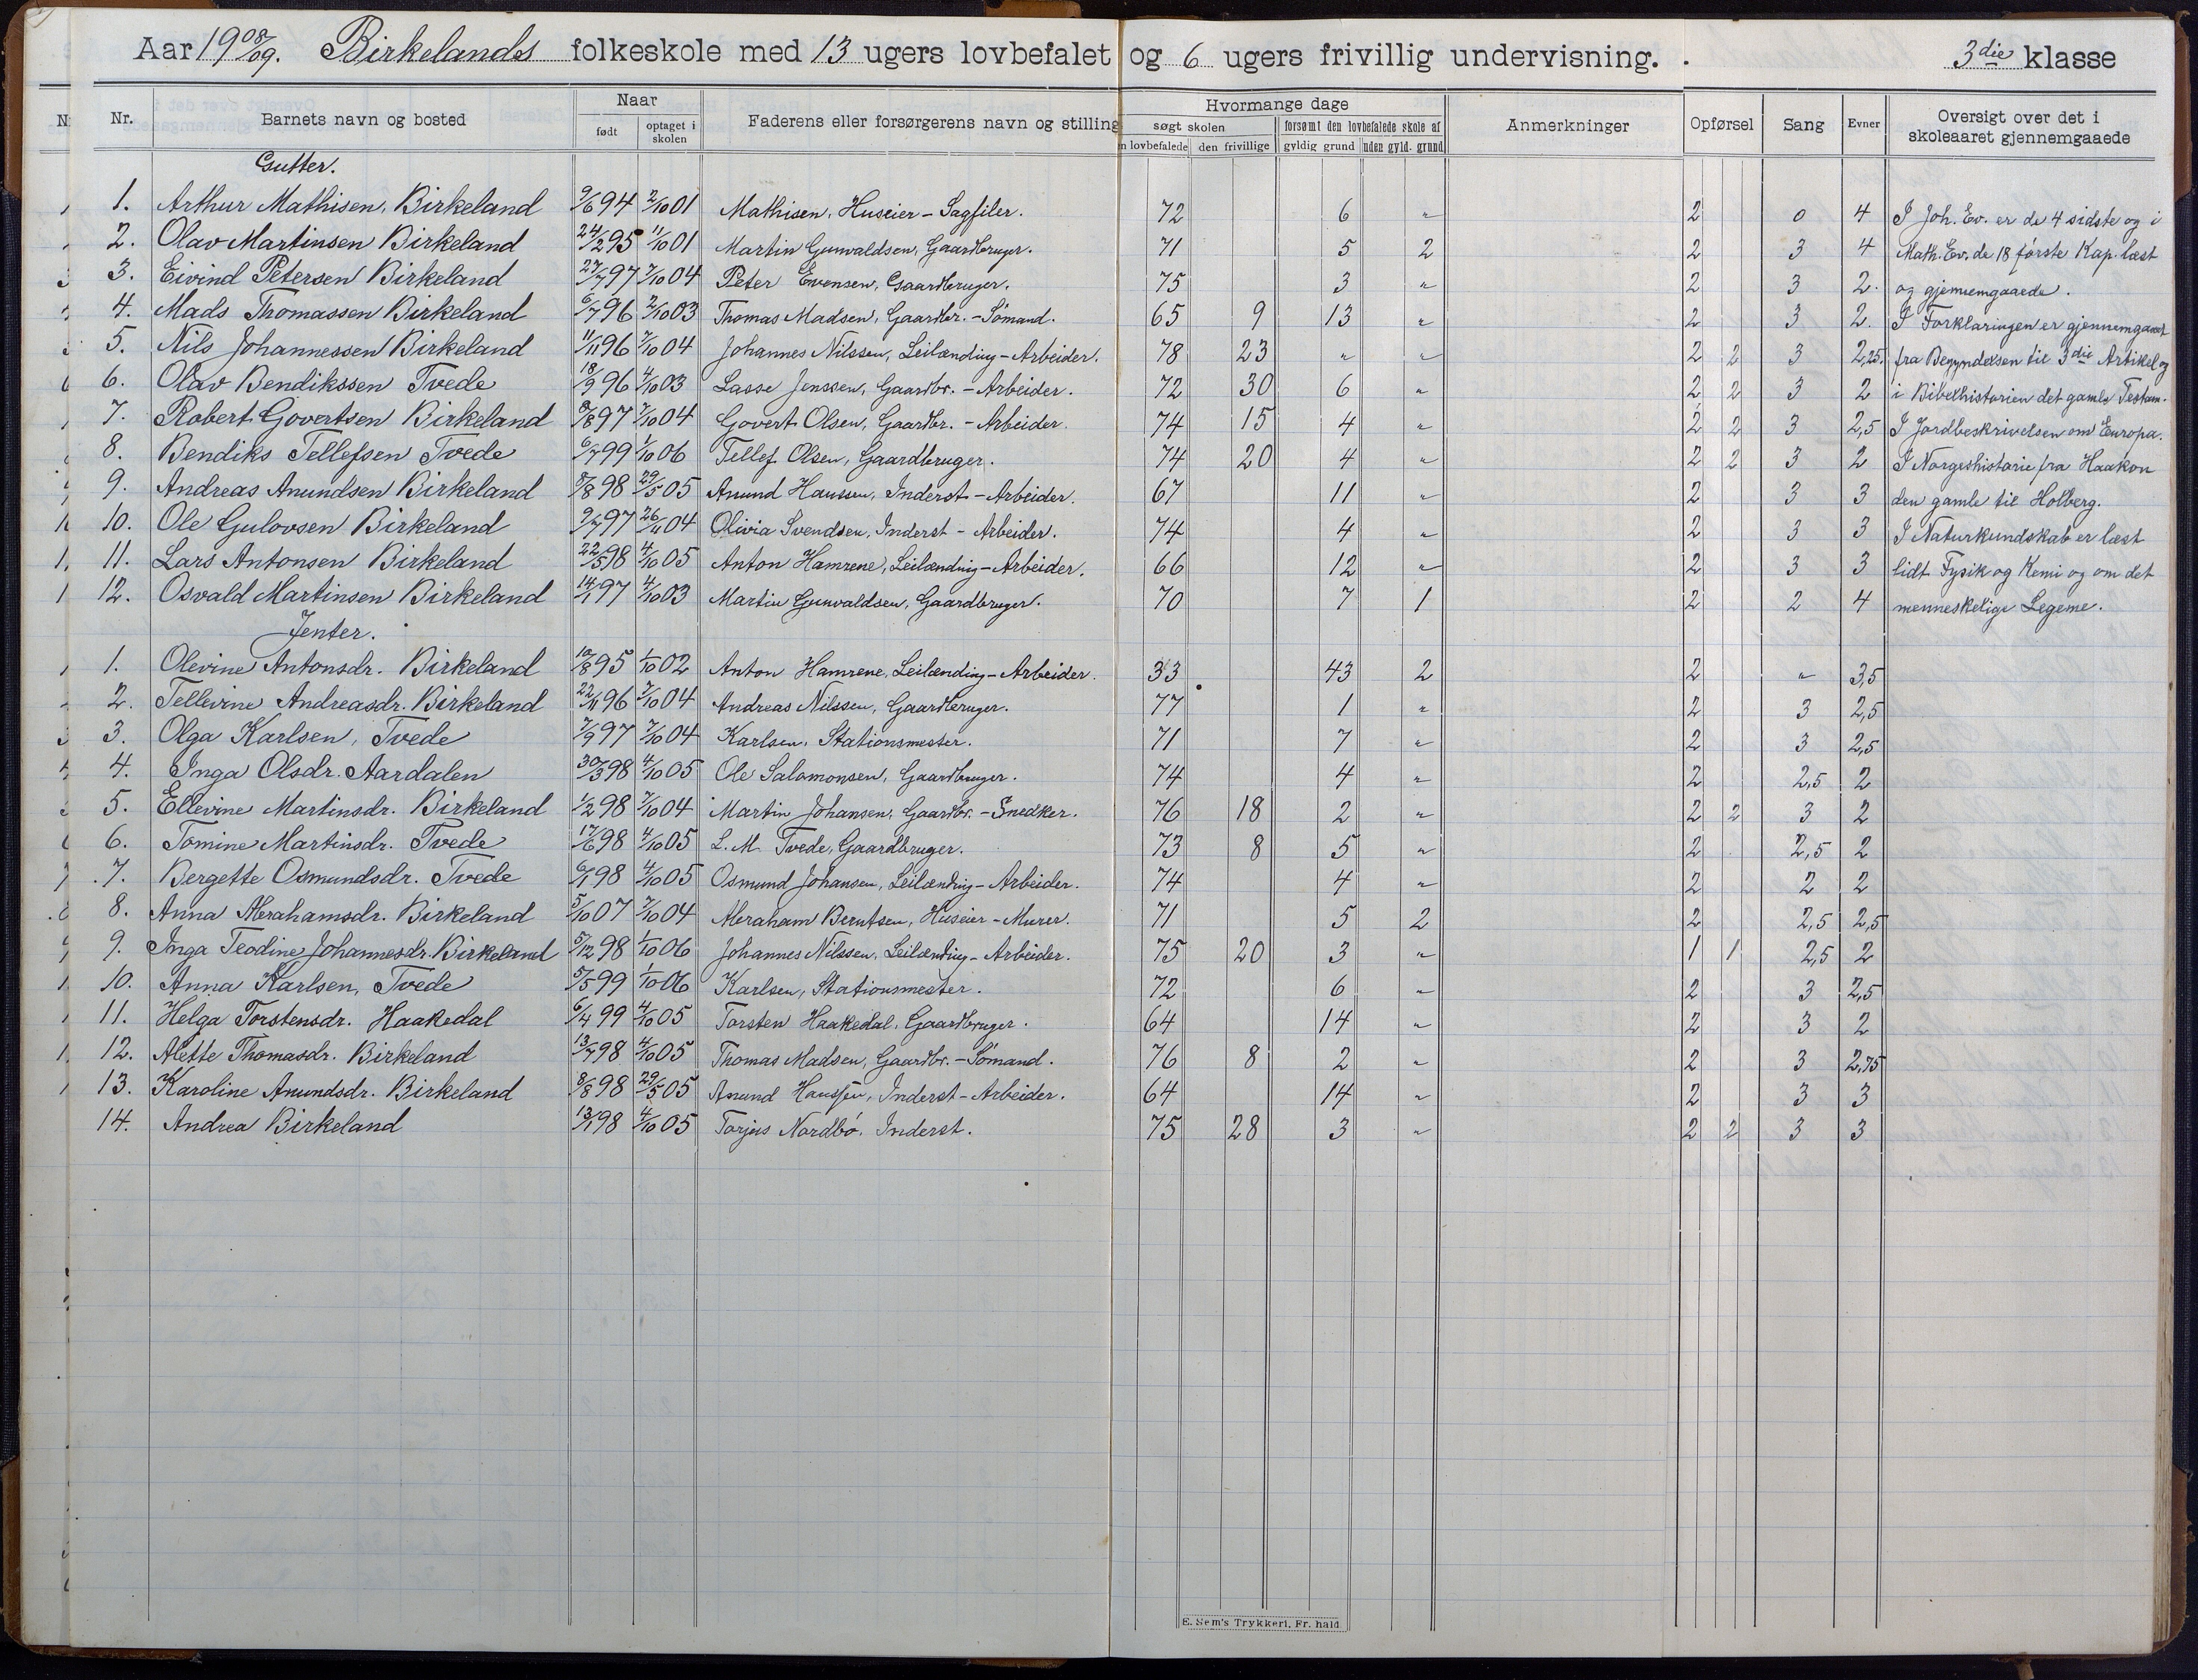 Aar 1908/09. Birkelands folkeskole med 13 ugers lovbefalet og 6 ugers frivillig undervisning. 3die klasse
Nr. Barnets navn og bosted Naar født optaget i skolen Faderens eller forsørgerens navn og stilling Hvormange dage søgt skolen n lovbefalede den frivillige forsømt den lovbefalede skole af gyldig grund uden gyld. grund Anmerkninger Opførsel Sang Evner Oversigt over det i skoleaaret gjennemgaaede
Gutter.
1. Arthur Mathisen, Birkeland 9/6 94 2/10 01 Mathisen, Huseier - Sagfiler. 72 6 " 2 0 4 I Joh. Ev. er de 4 sidste og i
2. Olav Martinsen Birkeland 24/2 95 11/10 01 Martin Gunvaldsen, Gaardbruger. 71 5 2 2 3 4 Math. Ev. de 18 første Kap. læst
3. Eivind Petersen Birkeland 27/7 97 7/10 04 Peter Evensen, Gaardbruger. 75 3 " 2 3 2. og gjennemgaaede.
4. Mads Thomassen Birkeland 6/7 96 2/10 03 Thomas Madsen, Gaardbr. - Sømand. 65 9 13 " 2 3 2. I Forklaringen er gjennemgaaet
5. Nils Johannessen Birkeland 11/11 96 7/10 04 Johannes Nilssen, Leilænding - Arbeider. 78 23 " " 2 2 3 2,25. fra Begyndelsen til 3die Artikel og
6. Olav Bendikssen Tvede 18/9 96 4/10 03 Lasse Jenssen, Gaardbr. - Arbeider. 72 30 6 " 2 2 3 2 i Bibelhistorien det gamle Testam.
7. Robert Govertsen Birkeland 8/8 97 7/10 04 Govert Olsen, Gaardbr. - Arbeider. 74 15 4 " 2 2 3 2,5 I Jordbeskrivelsen om Europa.
8. Bendiks Tellefsen Tvede 6/7 99 1/10 06 Tellef Olsen, Gaardbruger. 74 20 4 " 2 2 3 2 I Norgeshistorie fra Haakon
9. Andreas Anundsen Birkeland 8/8 98 29/5 05 Anund Hanssen, Inderst - Arbeider. 67 11 " 2 3 3 den gamle til Holberg.
10. Ole Gulovsen Birkeland 9/7 97 26/11 04 Olivia Svendsen, Inderst - Arbeider. 74 4 " 2 3 3 I Naturkundskab er læst
11. Lars Antonsen Birkeland 22/5 98 4/10 05 Anton Hamrene, Leilænding - Arbeider. 66 12 " 2 3 3 lidt Fysik og Kemi og om det
12. Osvald Martinsen Birkeland 14/1 97 4/10 03 Martin Gunvaldsen, Gaardbruger. 70 7 1 2 2 4 menneskelige Legeme.
Jenter.
1. Olevine Antonsdr. Birkeland 10/8 95 1/10 02 Anton Hamrene, Leilænding - Arbeider. 33 43 2 2 " 3,5
2. Tellevine Andreasdr. Birkeland 22/11 96 7/10 04 Andreas Nilssen, Gaardbruger. 77 1 " 2 3 2,5
3. Olga Karlsen, Tvede 7/9 97 7/10 04 Karlsen, Stationsmester. 71 7 " 2 3 2,5
4. Inga Olsdr. Aardalen 30/3 98 4/10 05 Ole Salomonsen, Gaardbruger. 74 4 " 2 2,5 2
5. Ellevine Martinsdr. Birkeland 1/2 98 7/10 04 Martin Johansen, Gaardbr. - Snedker. 76 18 2 " 2 2 3 2
6. Tomine Martinsdr. Tvede 17/6 98 4/10 05 L. M. Tvede, Gaardbruger. 73 8 5 " 2 2,5 2
7. Bergette Osmundsdr. Tvede 6/1 98 4/10 05 Osmund Johansen, Leilænding - Arbeider. 74 4 " 2 2 2
8. Anna Abrahamsdr. Birkeland 5/10 07 7/10 04 Abraham Berntsen, Huseier - Murer. 71 5 2 2 2,5 2,5
9. Inga Teodine Johannesdr. Birkeland 5/12 98 1/10 06 Johannes Nilssen, Leilænding - Arbeider. 75 20 3 " 1 1 2,5 2
10. Anna Karlsen, Tvede 5/5 99 1/10 06 Karlsen, Stationsmester. 72 6 " 2 3 2,5
11. Helga Torstensdr. Haakedal 6/4 99 4/10 05 Torsten Haakedal, Gaardbruger. 64 14 " 2 3 2
12. Alette Thomasdr. Birkeland 13/7 98 4/10 05 Thomas Madsen, Gaardbr. - Sømand. 76 8 2 " 2 3 2,75
13. Karoline Anundsdr. Birkeland 8/8 98 29/5 05 Anund Hanssen, Inderst - Arbeider. 64 14 " 2 3 3
14. Andrea Birkeland 13/1 98 4/10 05 Torjus Nordbø, Inderst. 75 28 3 " 2 2 3 3
E. Sem's Trykkeri, Fr. hald